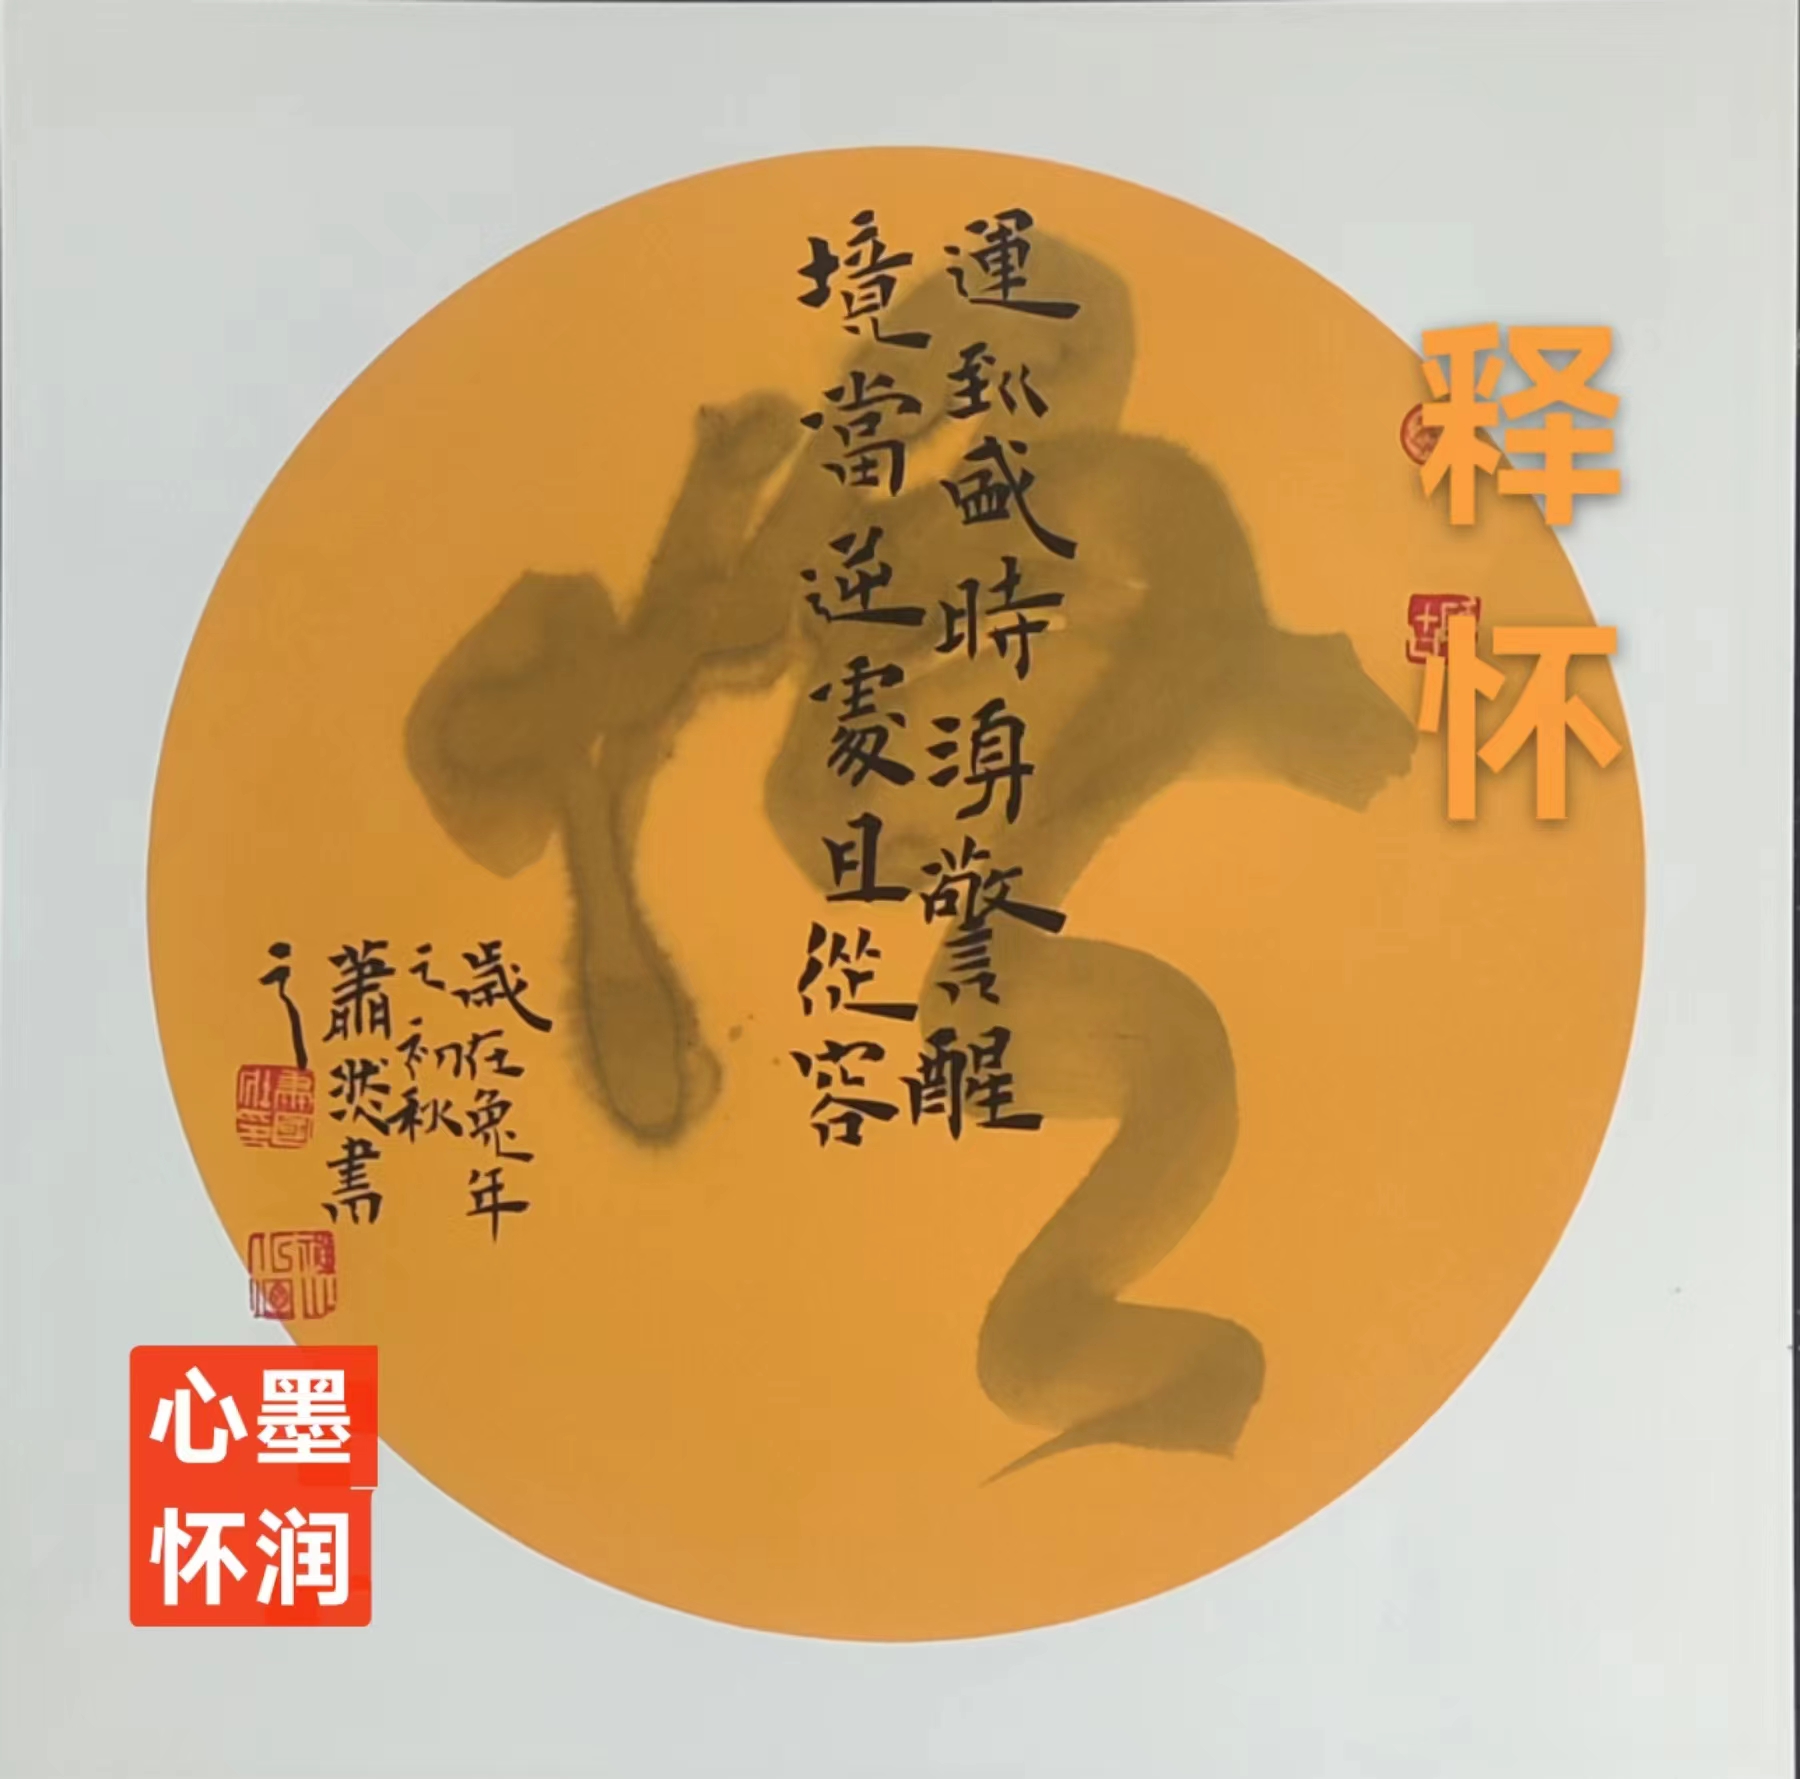 释怀
運到盛時須警醒
境當逆處且從容
歲在兔年
之初秋
蕭然書
之
心墨
怀润